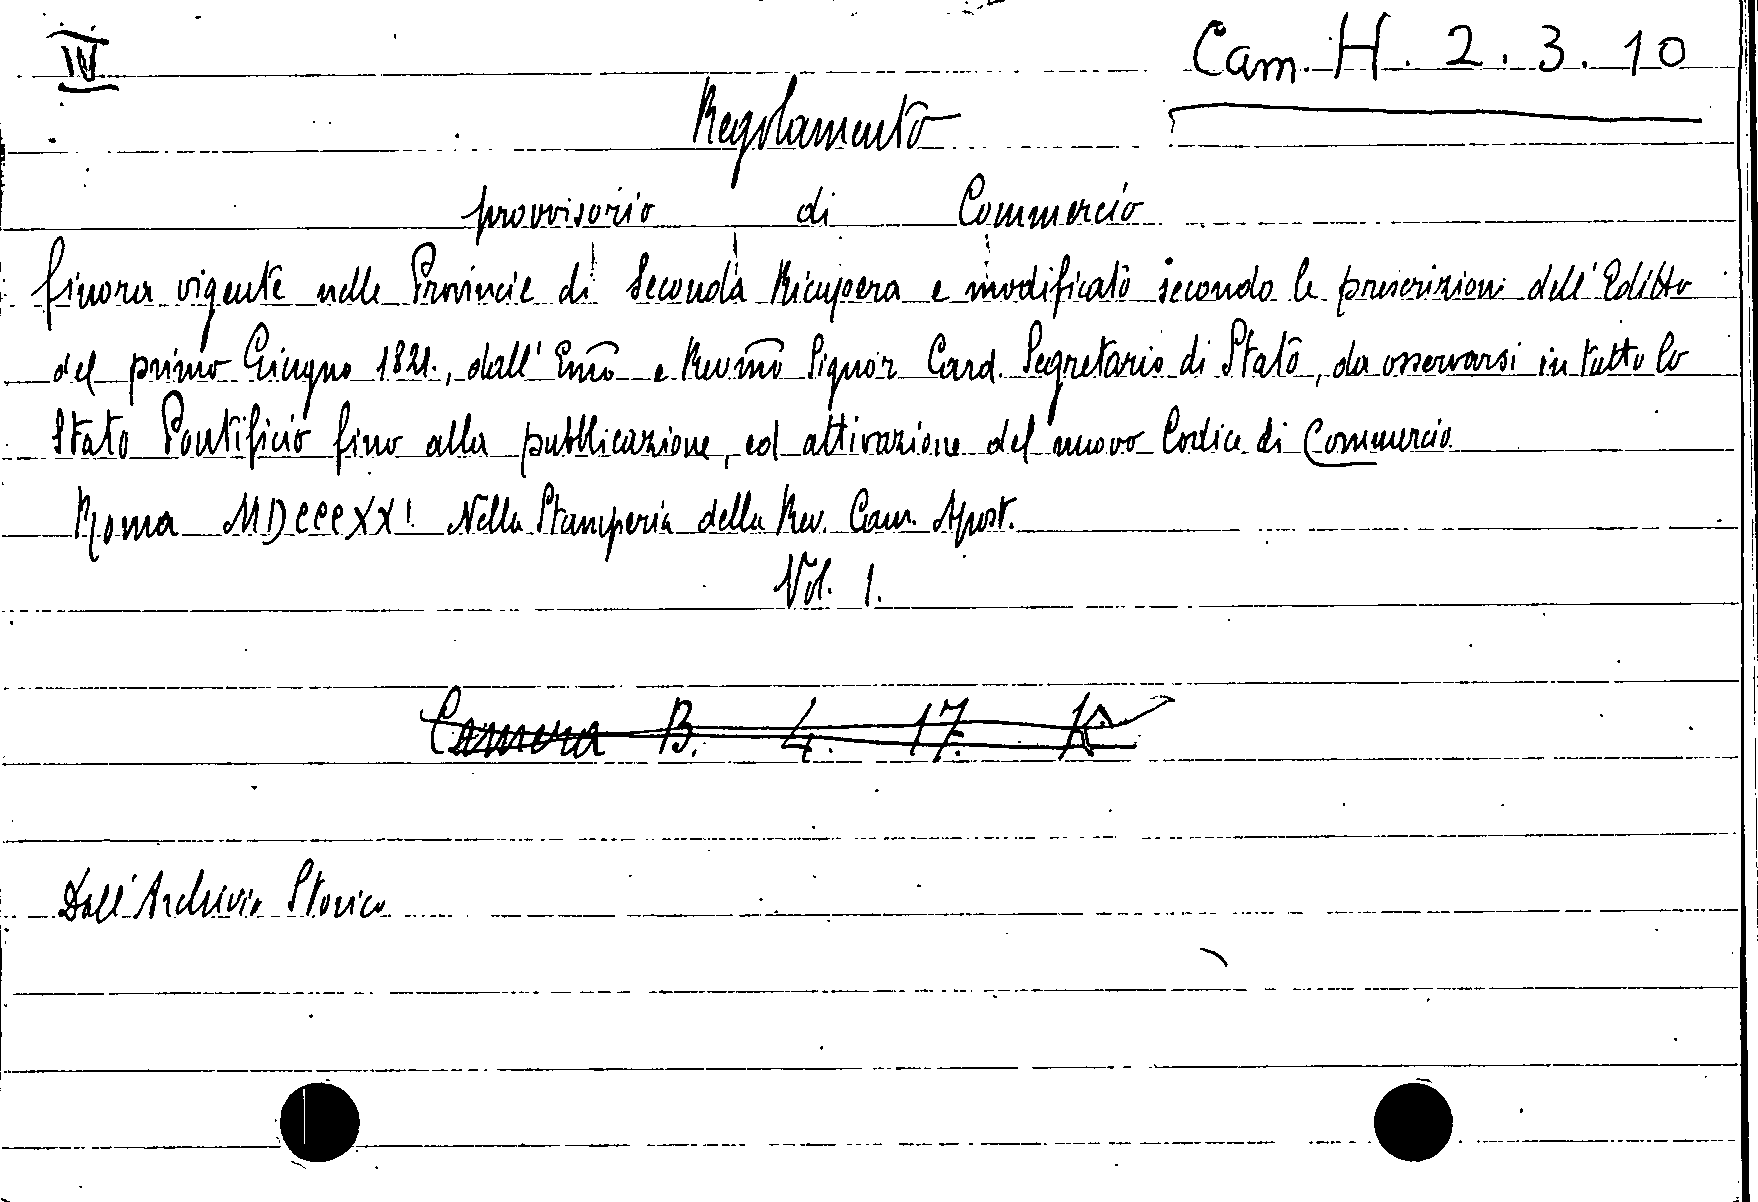 IV
Cam. H. 2. 3. 10
Regolamento
provvisorio di Commercio
finora vigente nelle Provincie di Seconda Ricupera e modificato secondo le prescrizioni dell'Editto
del primo Giugno 1821., dall'Emo e Revmo Signor Card. Segretario di Stato, da osservarsi in tutto lo
Stato Pontificio fino alla pubblicazione, ed attivazione del nuovo Codice di Commercio
Roma MDCCCXXI. Nella Stamperia della Rev. Cam. Apost.
Vol. 1.
Camera B. 4. 17. K
Dall'Archivio Storico